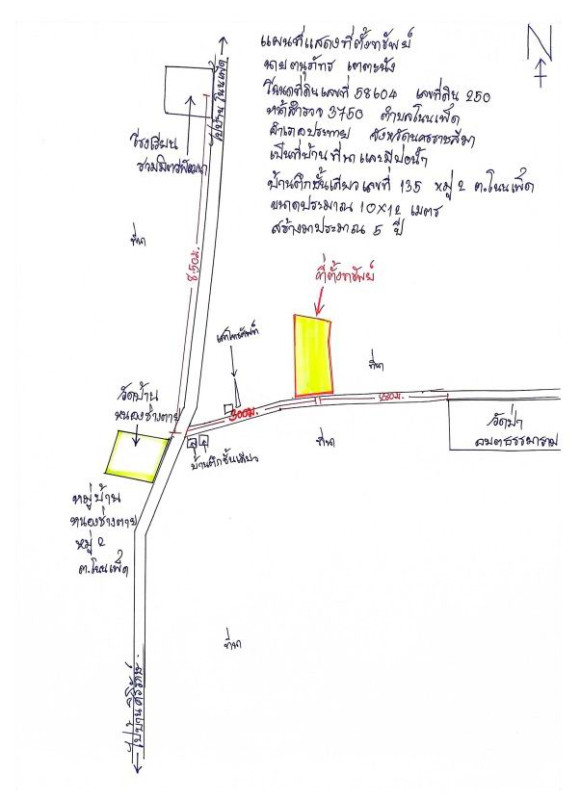 แผนที่แสดงที่ตั้งทรัพย์
นาย
โฉนดที่ดินเลขที่ 58604 เลขที่ดิน 250
หน้าสำรวจ 3750 ตำบลโนนเพ็ด
อำเภอประทาย จังหวัดนครราชสีมา
เป็นที่บ้าน ที่นา และมีบ่อน้ำ
บ้านตึกชั้นเดียว เลขที่ 135 หมู่ 2 ต.โนนเพ็ด
ขนาดประมาณ 10x12 เมตร
สร้างมาประมาณ 5 ปี
N
ไปบ้านโนนเพ็ด
โรงเรียน
ชุมมิตรพัฒนา
ที่นา
850ม.
ที่ตั้งทรัพย์
เสาโทรศัพท์
ที่นา
วัดบ้าน
หนองช่างตาย
300ม.
วัดป่า
ที่นา
บ้านตึกชั้นเดียว
หมู่บ้าน
หนองช่างตาย
หมู่ 2
ต.โนนเพ็ด
ที่นา
ไปบ้าน